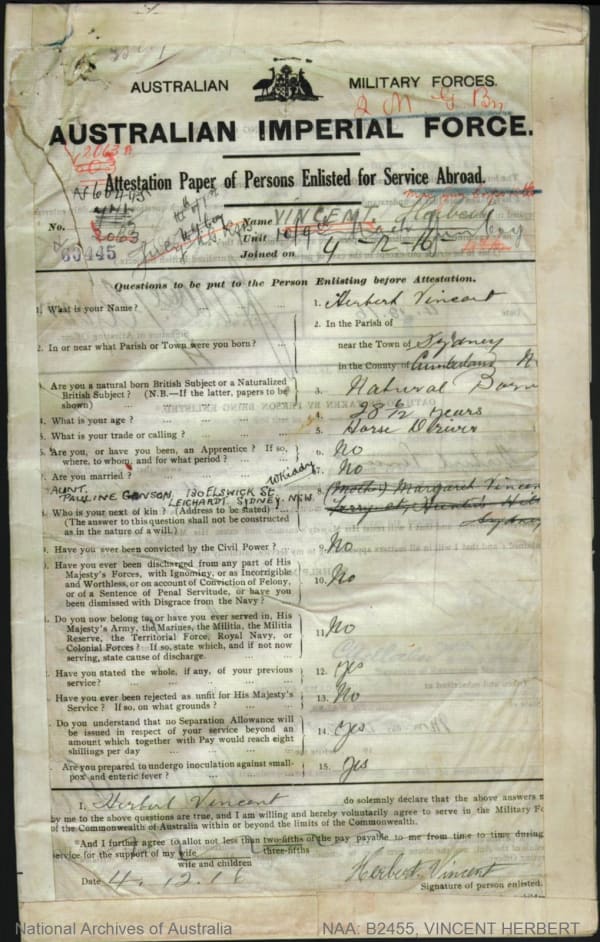 AUSTRALIAN MILITARY FORCES.
2 M G Bn
AUSTRALIAN IMPERIAL FORCE.
Attestation Paper of Persons Enlisted for Service Abroad.
2063
No. 60445 Name VINCENT Herbert
Unit
Joined on 4-12-16
Questions to be put to the Person Enlisting before Attestation.
1. What is your Name? 1. Herbert Vincent
2. In or near what Parish or Town were you born? 2. In the Parish of
near the Town of Sydney
in the County of Cumberland
Are you a natural born British Subject or a Naturalized
British Subject? (N.B.—If the latter, papers to be
shown) 3. Natural Born
What is your age? 4. 28 6/12 years
What is your trade or calling? 5. Horse Driver
Are you, or have you been, an Apprentice? If so,
where, to whom, and for what period? 6. No
Are you married? 7. No
AUNT.
PAULINE GONSON, 130 ELSWICK ST
LEICHARDT SYDNEY NSW
Who is your next of kin? (Address to be stated) 8. (Mother) Margaret Vincent
(The answer to this question shall not be construed
as in the nature of a will.) Sydney
Have you ever been convicted by the Civil Power? 9. No
Have you ever been discharged from any part of His
Majesty's Forces, with Ignominy, or as Incorrigible
and Worthless, or on account of Conviction of Felony,
or of a Sentence of Penal Servitude, or have you
been dismissed with Disgrace from the Navy? 10. No
Do you now belong to, or have you ever served in, His
Majesty's Army, the Marines, the Militia, the Militia
Reserve, the Territorial Force, Royal Navy, or
Colonial Forces? If so, state which, and if not now
serving, state cause of discharge 11. No
Have you stated the whole, if any, of your previous
service? 12. yes
Have you ever been rejected as unfit for His Majesty's
Service? If so, on what grounds? 13. No
Do you understand that no Separation Allowance will
be issued in respect of your service beyond an
amount which together with Pay would reach eight
shillings per day 14. yes
Are you prepared to undergo inoculation against small-
pox and enteric fever? 15. yes
I, Herbert Vincent do solemnly declare that the above answers
by me to the above questions are true, and I am willing and hereby voluntarily agree to serve in the Military
of the Commonwealth of Australia within or beyond the limits of the Commonwealth.
*And I further agree to allot not less than two-fifths of the pay payable to me from time to time during
three-fifths
service for the support of my wife
wife and children
Date 4.12.16 Herbert Vincent
Signature of person enlisted.
National Archives of Australia NAA: B2455, VINCENT HERBERT